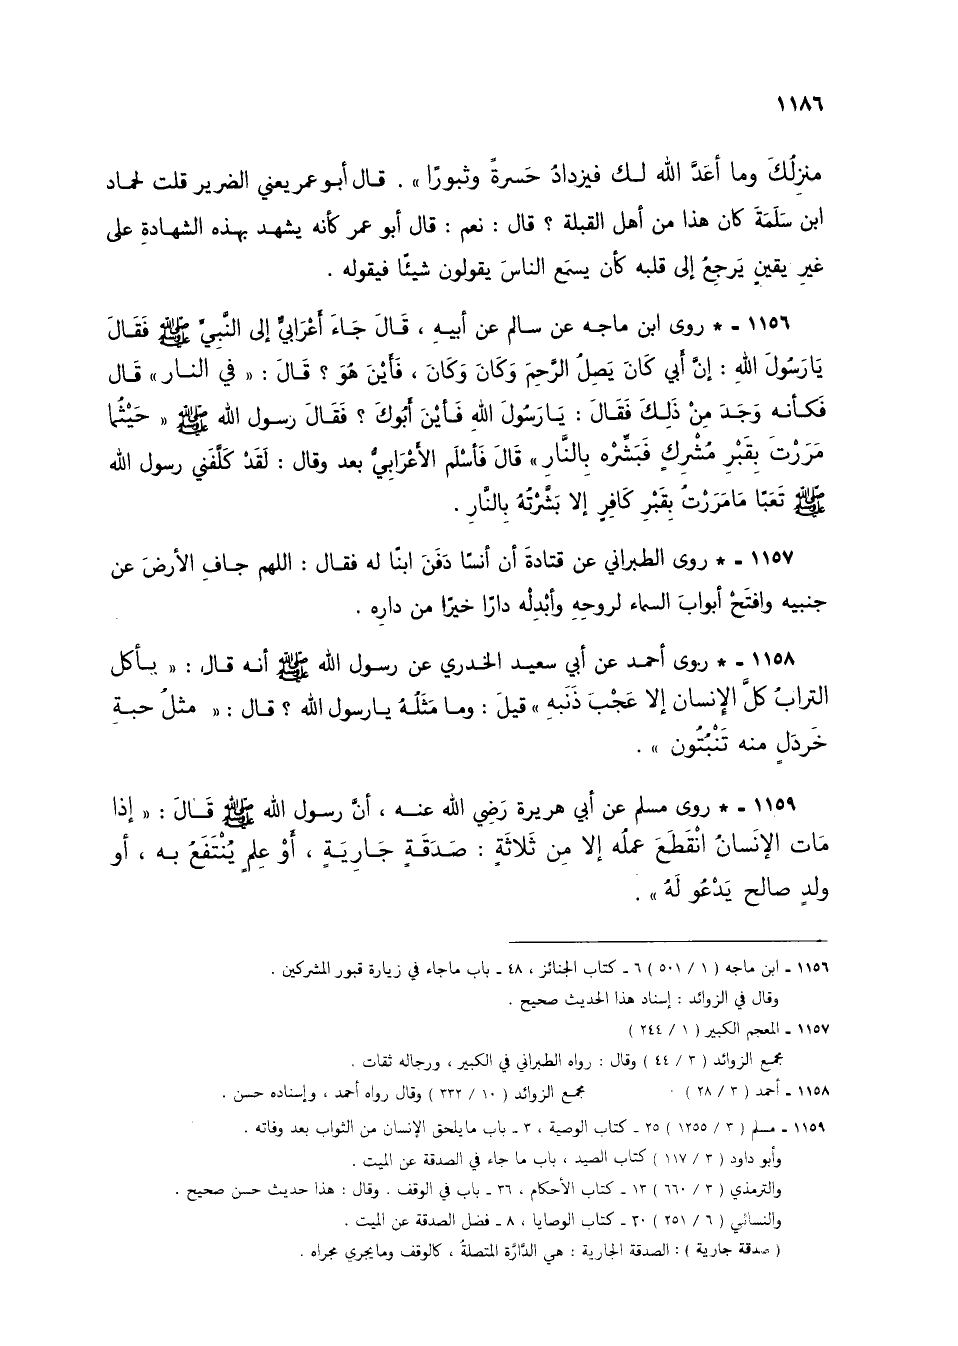 ١١٨٦
منزلُكَ وما أعَدَّ الله لـك فيزدادُ حَسرةً وثبورًا » . قـال أبـو عمر يعني الضرير قلت لحماد
ابن سَلَمَةَ كان هذا من أهل القبلة ؟ قال : نعم : قال أبو عمر كأنه يشهـد بهـذه الشهـادةِ على
غيرِ يقينٍ يَرجِعُ إلى قلبه كأن يسمَع الناسَ يقولون شيئًا فيقوله .
١١٥٦ - * روى ابن ماجـه عن سـالم عن أبيـهِ ، قَـالَ جَـاءَ أَعْرَابيٌّ إلى النَّبيِّ ﷺ فَقَـالَ
يَارَسُولَ اللهِ : إنَّ أبي كَانَ يَصِلُ الرَّحِمَ وَكَانَ وَكَانَ ، فَأَيْنَ هُوَ ؟ قَـالَ : « في النـار » قَـال
فَكـأنـه وَجَـدَ مِنْ ذَلِـكَ فَقَـالَ : يَـارَسُولَ اللهِ فَـأيْنَ أَبُوكَ ؟ فَقَـالَ رسـول الله ﷺ « حَيْثُما
مَرَرْتَ بِقَبْرِ مُشْرِكٍ فَبَشِّرْه بِالنَّارِ » قَالَ فَأسْلَم الأعْرَابيُّ بعد وقال : لَقَدْ كَلَّفَني رسول الله
ﷺ تَعَبًا مَامَرَرْتُ بِقَبْرِ كَافِرٍ إلا بَشَّرْتُهُ بِالنَّارِ .
١١٥٧ - * روى الطبراني عن قتادةَ أن أنسًا دَفَنَ ابنًا له فقـال : اللهم جـافِ الأرضَ عن
جنبيه وافتَحْ أبوابَ السماء لروحِهِ وأبْدِلْه دارًا خيرًا من دارِه .
١١٥٨ - * روى أحمـد عن أبي سعيـد الخـدري عن رسـول الله ﷺ أنـه قـال : « يـأكل
الترابُ كلَّ الإنسان إلا عَجْبَ ذَنَبهِ » قيلَ : ومـا مَثَلُـهُ يـارسول الله ؟ قـال : « مثلُ حبـةِ
خَردَلٍ منه تَنْبُتُون » .
١١٥٩ - * روى مسلم عن أبي هريرة رَضِي الله عنـه ، أنَّ رسـول الله ﷺ قَـالَ : « إذا
مَات الإنَسانُ انْقَطَعَ عملُه إلا مِن ثَلاثَةٍ : صَـدَقَـةٍ جَـاريَـةٍ ، أَوْ علمٍ يُنْتَفَعُ بـه ، أو
ولدٍ صالح يَدْعُو لَهُ » .
١١٥٦ - ابن ماجه ( ١ / ٥٠١ ) ٦ - كتاب الجنائز ، ٤٨ - باب ماجاء في زيارة قبور المشركين .
وقال في الزوائد : إسناد هذا الحديث صحيح .
١١٥٧ - المعجم الكبير ( ١ / ٢٤٤ )
مجمع الزوائد ( ٣ / ٤٤ ) وقال : رواه الطبراني في الكبير ، ورجاله ثقات .
١١٥٨ - أحمد ( ٣ / ٢٨ ) . مجمع الزوائد ( ١٠ / ٣٣٢ ) وقال رواه أحمد ، وإسناده حسن .
١١٥٩ - مسلم ( ٣ / ١٢٥٥ ) ٢٥ - كتاب الوصية ، ٣ - باب مايلحق الإنسان من الثواب بعد وفاته .
وأبو داود ( ٣ / ١١٧ ) كتاب الصيد ، باب ما جاء في الصدقة عن الميت .
والترمذي ( ٣ / ٦٦٠ ) ١٣ - كتاب الأحكام ، ٣٦ - باب في الوقف . وقال : هذا حديث حسن صحيح .
والنسائي ( ٦ / ٢٥١ ) ٣٠ - كتاب الوصايا ، ٨ - فضل الصدقة عن الميت .
( صدقة جارية ) : الصدقة الجارية : هي الدَّارَّة المتصلةُ ، كالوقف ومايجري مجراه .